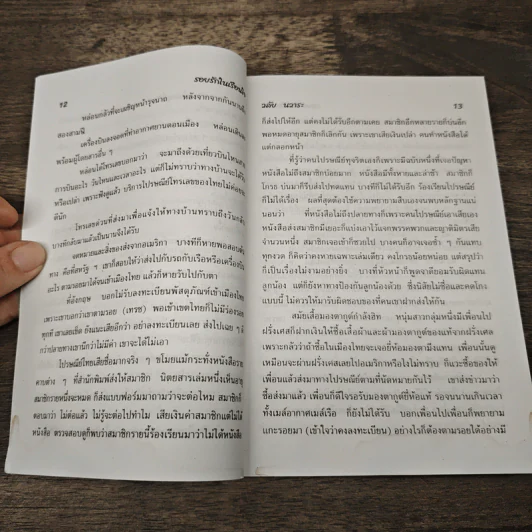 12
รอยรักในเรือนใจ
หล่อนกลัวที่จะเผชิญหน้า หลังจากจากกันนาน
สองสามปี
เครื่องบินลงจอดที่ท่าอากาศยานดอนเมือง หล่อนเดิน
พร้อมผู้โดยสารอื่น ๆ
หล่อนได้โทรเลขบอกมาว่า จะมาถึงด้วยเที่ยวบินไหนสาย
การบินอะไร วันไหนและเวลาอะไร แต่ก็ไม่ทราบว่าทางบ้านจะได้รับ
หรือเปล่า เพราะฟังดูแล้ว บริการไปรษณีย์โทรเลขของไทยไม่ค่อย
ดีนัก
โทรเลขด่วนที่ส่งมาเพื่อแจ้งให้ทางบ้านทราบถึงวันกลับ
บางทีกลับมาแล้วเป็นวันจึงได้รับ
จดหมายและสิ่งของส่งจากอเมริกา บางทีก็หายพอสอบถาม
ทาง คือที่สหรัฐ ฯ เขาก็สอบให้ว่าส่งไปกับรถกับเรือหรือเครื่องบิน
อะไร ตามรอยมาได้จนเข้าเมืองไทย แล้วก็หายวับไปกับตา
ที่อังกฤษ บอกไม่รับลงทะเบียนพัสดุภัณฑ์เข้าเมืองไทย
เพราะเขาบอกว่าเขาตามรอย (เทรซ) พอเข้าเขตไทยก็ไม่มีร่องรอย
ทุกที เขาเลยเข็ด ยังแนะเสียอีกว่า อย่าลงทะเบียนเลย ส่งไปเฉย ๆ ดี
กว่าปลายทางเขานึกว่าไม่มีค่า เขาจะได้ไม่เอา
ไปรษณีย์ไทยเสียชื่อมากจริง ๆ ขโมยแม้กระทั่งหนังสือราย
คาบต่าง ๆ ที่สำนักพิมพ์ส่งให้สมาชิก นิตยสารเล่มหนึ่งเห็นอายุ
สมาชิกรายหนึ่งจะหมด ก็ส่งแบบฟอร์มมาถามว่าจะต่อไหม สมาชิกก็
ตอบมาว่า ไม่ต่อแล้ว ไม่รู้จะต่อไปทำไม เสียเงินค่าสมาชิกแต่ไม่ได้
หนังสือ ตรวจสอบดูก็พบว่าสมาชิกรายนี้ร้องเรียนมาว่าไม่ได้หนังสือ
วลัย นวาระ
13
ก็ส่งไปให้อีก แต่คงไม่ได้รับอีกตามเคย สมาชิกอีกหลายรายก็บ่นอีก
พอหมดอายุสมาชิกก็เลิกกัน เพราะเขาเสียเงินเปล่า คนทำหนังสือได้
แต่กลอกหน้า
ที่รู้ว่าคนไปรษณีย์ทุจริตเองก็เพราะมีฉบับหนึ่งที่เจอปัญหา
หนังสือไม่ถึงสมาชิกบ่อยมาก หนังสือมีทั้งหายและล่าช้า สมาชิกก็
โกรธ บ่นมาก็รีบส่งไปทดแทน บางทีก็ไม่ได้รับอีก ร้องเรียนไปรษณีย์
ก็ไม่ได้เรื่อง ผลที่สุดต้องใช้ความพยายามสืบเองจนพบหลักฐานแน่
นอนว่า ที่หนังสือไม่ถึงปลายทางก็เพราะคนไปรษณีย์เอาเสียเอง
หนังสือส่งสมาชิกมีเยอะก็แบ่งเอาไว้แจกพรรคพวกและญาติมิตรเสีย
จำนวนหนึ่ง สมาชิกเจอเข้าก็ช่วยไป บางคนถือว่าเจอซ้ำ ๆ กันแทบ
ทุกงวด ก็คิดว่าคงหายเฉพาะเล่มเดียว คงโกรธน้อยหน่อย แต่สรุปว่า
ก็เป็นเรื่องไม่งามอย่างยิ่ง บางทีหัวหน้าก็พูดจาดียอมรับผิดแทน
ลูกน้อง แต่ก็ยังหาทางป้องกันลูกน้องด้วย ซึ่งนิสัยไม่ซื่อและคดโกง
แบบนี้ ไม่ควรให้มารับผิดชอบของที่คนเขาฝากส่งให้กัน
สมัยเสื้อมองตากูต์กำลังฮิท หนุ่มสาวกลุ่มหนึ่งมีเพื่อนไป
ฝรั่งเศสก็ฝากเงินให้ซื้อเสื้อผ้าและผ้ามองตากูต์ของแท้จากฝรั่งเศส
เพราะกลัวว่าถ้าซื้อในเมืองไทยจะเจอยี่ห้อมองตามึงแทน เพื่อนนั้นดู
เหมือนจะผ่านฝรั่งเศสเลยไปอเมริกาหรือไงไม่ทราบ ก็แวะซื้อของให้
เพื่อนแล้วส่งมาทางไปรษณีย์ตามที่นัดหมายกันไว้ เขาส่งข่าวมาว่า
ซื้อส่งมาแล้ว เพื่อนก็ดีใจรอรับมองตากูต์ยี่ห้อแท้ รอจนนานเกินเวลา
ทั้งเมล์อากาศเมล์เรือ ก็ยังไม่ได้รับ บอกเพื่อนไปเพื่อนก็พยายาม
แกะรอยมา (เข้าใจว่าคงลงทะเบียน) อย่างไรก็ต้องตามรอยได้อย่างมี